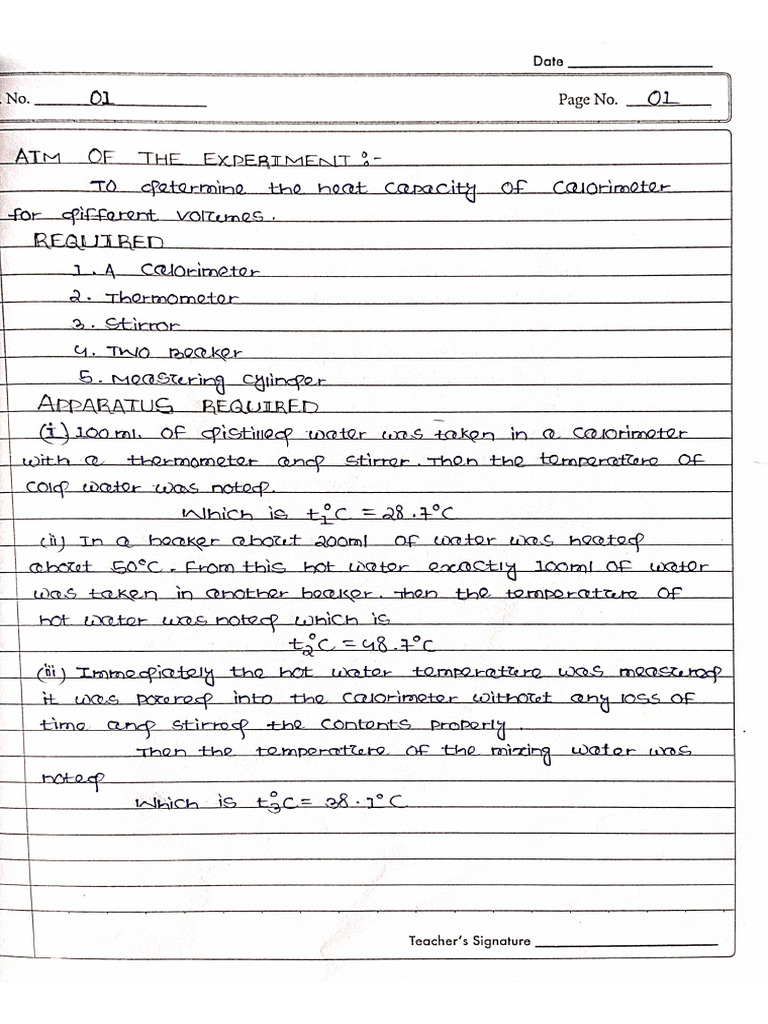 Date
. No. 01
Page No. 01
AIM OF THE EXPERIMENT :-
To determine the heat capacity of Calorimeter
for different volumes.
REQUIRED
1. A Calorimeter
2. Thermometer
3. Stirror
4. Two Beaker
5. Measuring Cylinder
APPARATUS REQUIRED
(i) 100ml. of distilled water was taken in a Calorimeter
with a thermometer and stirrer. Then the temperature of
cold water was noted.
Which is t₁°C = 28.7°C
(ii) In a beaker about 200ml of water was heated
about 50°C. From this hot water exactly 100ml of water
was taken in another beaker. Then the temperature of
hot water was noted which is
t₂°C = 48.7°C
(iii) Immediately the hot water temperature was measured
it was poured into the calorimeter without any loss of
time and stirred the contents properly.
Then the temperature of the mixing water was
noted
Which is t₃°C = 38.1°C
Teacher's Signature